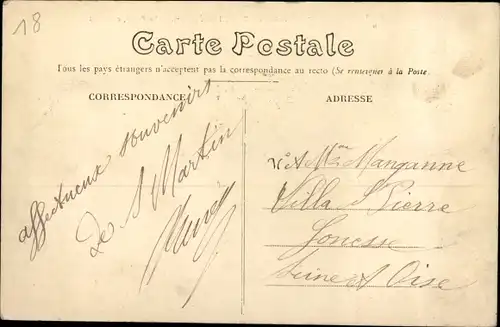 18
Carte Postale
Tous les pays étrangers n'acceptent pas la correspondance au recto (Se renseigner à la Poste.
CORRESPONDANCE
ADRESSE
affectueux souvenirs
de St Martin
Villa St Pierre
Gonesse
Seine et Oise